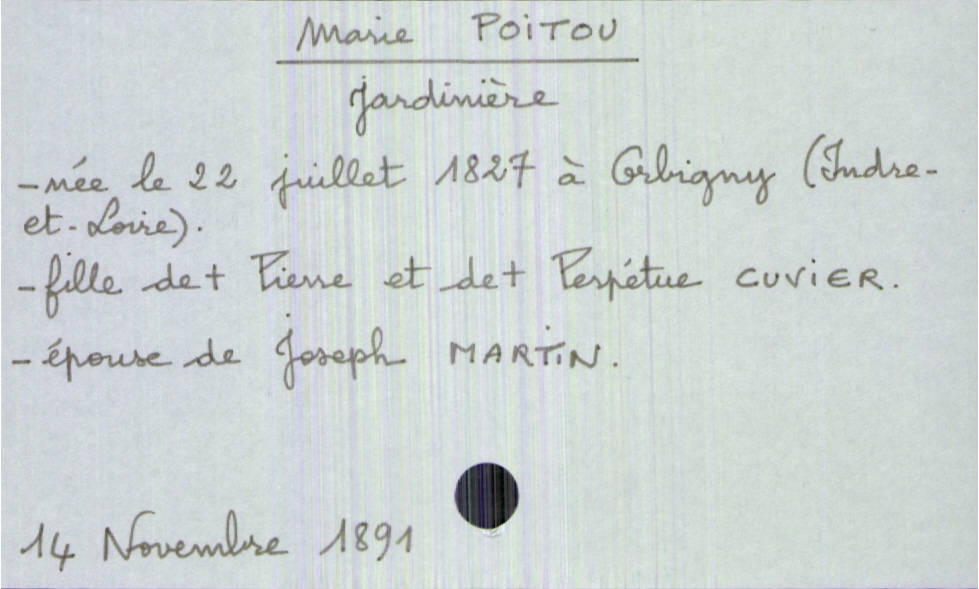 Marie POITOU
Jardinière
- née le 22 juillet 1827 à Orbigny (Indre-
et-Loire).
- fille de + Pierre et de + Perpétue CUVIER.
- épouse de Joseph MARTIN.
14 Novembre 1891